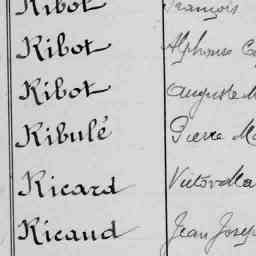 Ribot François
Ribot Alphonse
Ribot Auguste
Ribulé Pierre
Ricard Victor
Ricaud Jean Joseph